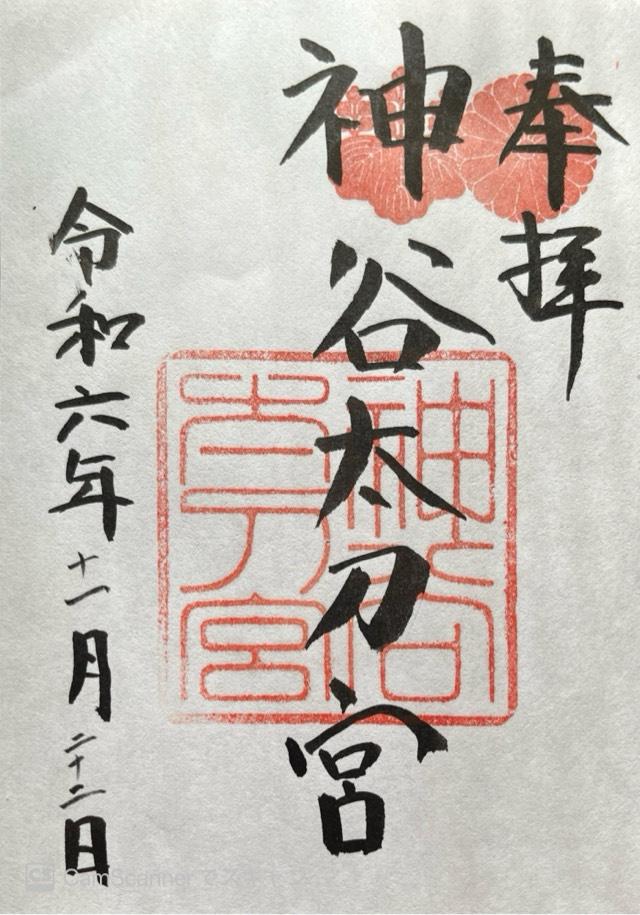 奉拝
神谷太刀宮
神谷太刀宮
令和六年十一月二十二日
CamScanner でス